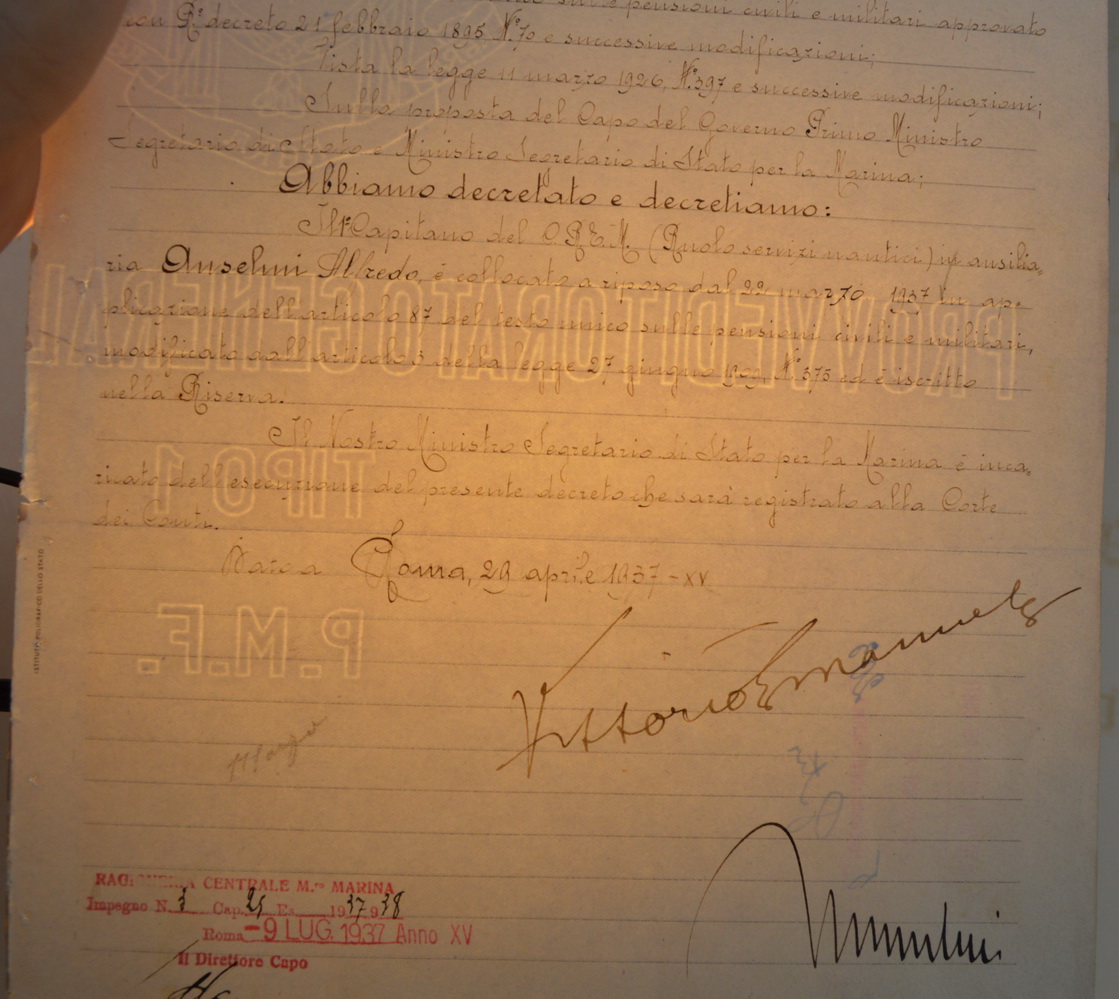 sulle pensioni civili e militari approvato
con R.º decreto 21 febbraio 1895 N.º 70 e successive modificazioni;
Vista la legge 11 marzo 1926, N.º 397 e successive modificazioni;
Sulla proposta del Capo del Governo Primo Ministro
Segretario di Stato e Ministro Segretario di Stato per la Marina;
Abbiamo decretato e decretiamo:
Il 1º Capitano del C.R.E.M. (Ruolo servizi nautici) in ausilia-
ria Anselmi Alfredo, è collocato a riposo dal 22 marzo 1937 in ap-
plicazione dell'articolo 87 del testo unico sulle pensioni civili e militari,
modificato dall'articolo 3 della legge 27 giugno 1909, N.º 375 ed è iscritto
nella Riserva.
Il Nostro Ministro Segretario di Stato per la Marina è inca-
ricato dell'esecuzione del presente decreto che sarà registrato alla Corte
dei Conti.
Dato a Roma, 29 aprile 1937-XV
Vittorio Emanuele
Mussolini
PROVVEDITORATO GENERAL
TIPO 1
P.M.F.
ISTITUTO POLIGRAFICO DELLO STATO
RAGIONERIA CENTRALE M.ro MARINA
Impegno N. 3 Cap. 25 Es. 1937 938
Roma -9 LUG. 1937 Anno XV
Il Direttore Capo